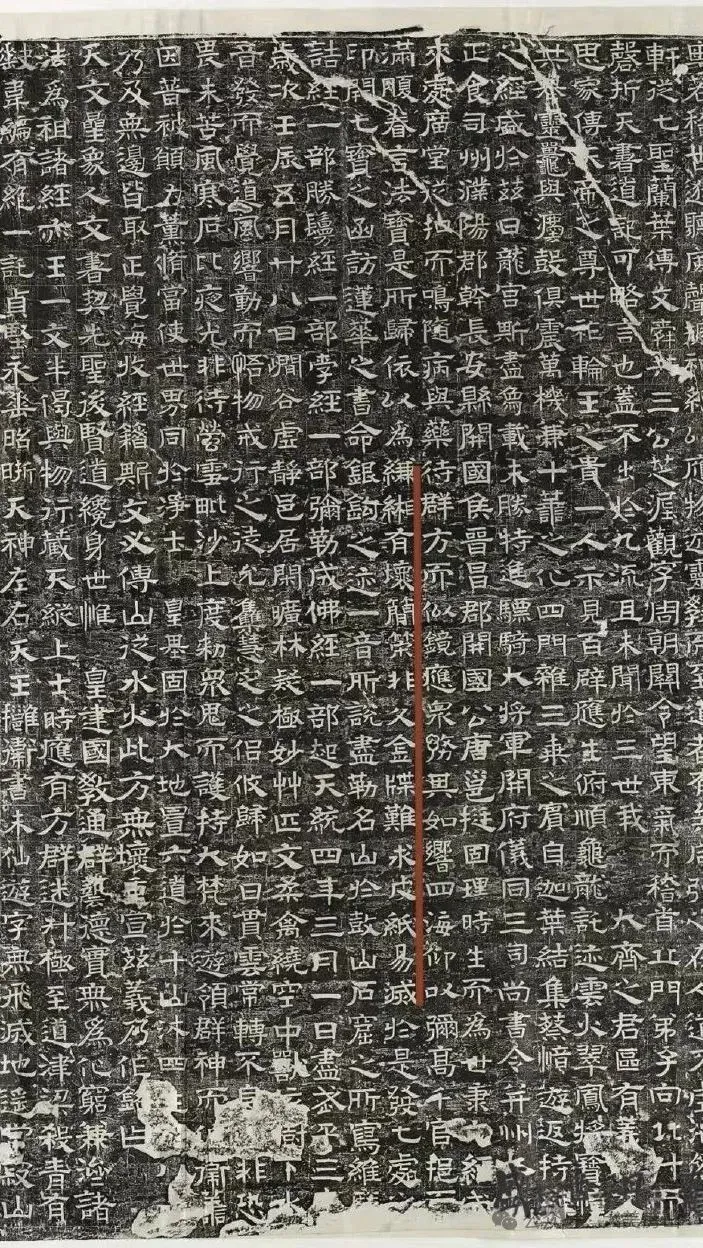 軒從七聖蘭葉傳文三公芝渥觀字周朝關令望東氣而稽首立門弟子向北斗而
聲圻天書道記可略言也蓋不出於九流且未聞於三世我 大齊之君區有義
思家傳天帝之尊世祚輪王之貴一人示見百辟應生俯順龜龍託迹雲火翠鳳將寶幢
世靈鼉與鷹鼓俱震萬機兼十善之化四門雜三乘之賓自迦葉結集蔡愔遊返持
之經盛於茲日龍宮斯盡鳥載未勝特進驃騎大將軍開府儀同三司尚書令并州大
正食司州濮陽郡幹長安縣開國侯晉昌郡開國公唐邕挺固理時生而為世秉
來處廣堂從扣而鳴隨病與藥待群方而似鏡應眾務其如響四海仰以彌高千官挹而
滿願眷言法寶是所歸依以為縑緗有壞簡策非久金牒難求皮紙易滅於是發七處之
印開七寶之函訪蓮華之書命銀鉤之迹一音所說盡勒名山於鼓山石窟之所寫維摩
詰經一部勝鬘經一部孛經一部彌勒成佛經一部起天統四年三月一日盡武平三
歲次壬辰五月廿八日澗谷虛靜邑居閑曠林疑極妙艸匹文柔禽繞空中獸樹下水
音發而覺道風響動而悟物戒行之徒允集慧定之侶攸歸如日貫雲常轉不息非恐
畏未苦風寒石比夜光非待螢雪毗沙上度勑眾鬼而護持大梵來遊領群神而衛
因普被願力薰脩當使世界同於淨土 皇基固於大地置六道於十山沐四生
乃及無邊皆取正覺海收經籍斯文必傳山從水火此方無壞重宣茲義乃作銘曰
天文星象人文書契先聖後賢道纏身世惟 皇建國教通群藝德實無為化窮兼濟諸
法為祖諸經亦王一文半偈與物行藏天縱上士時應有方群迷升極至道津梁殺青有
缺韋編有絕一託貞堅永垂昭晰天神左右天王擁衛書未仙遊字無飛滅地寂山